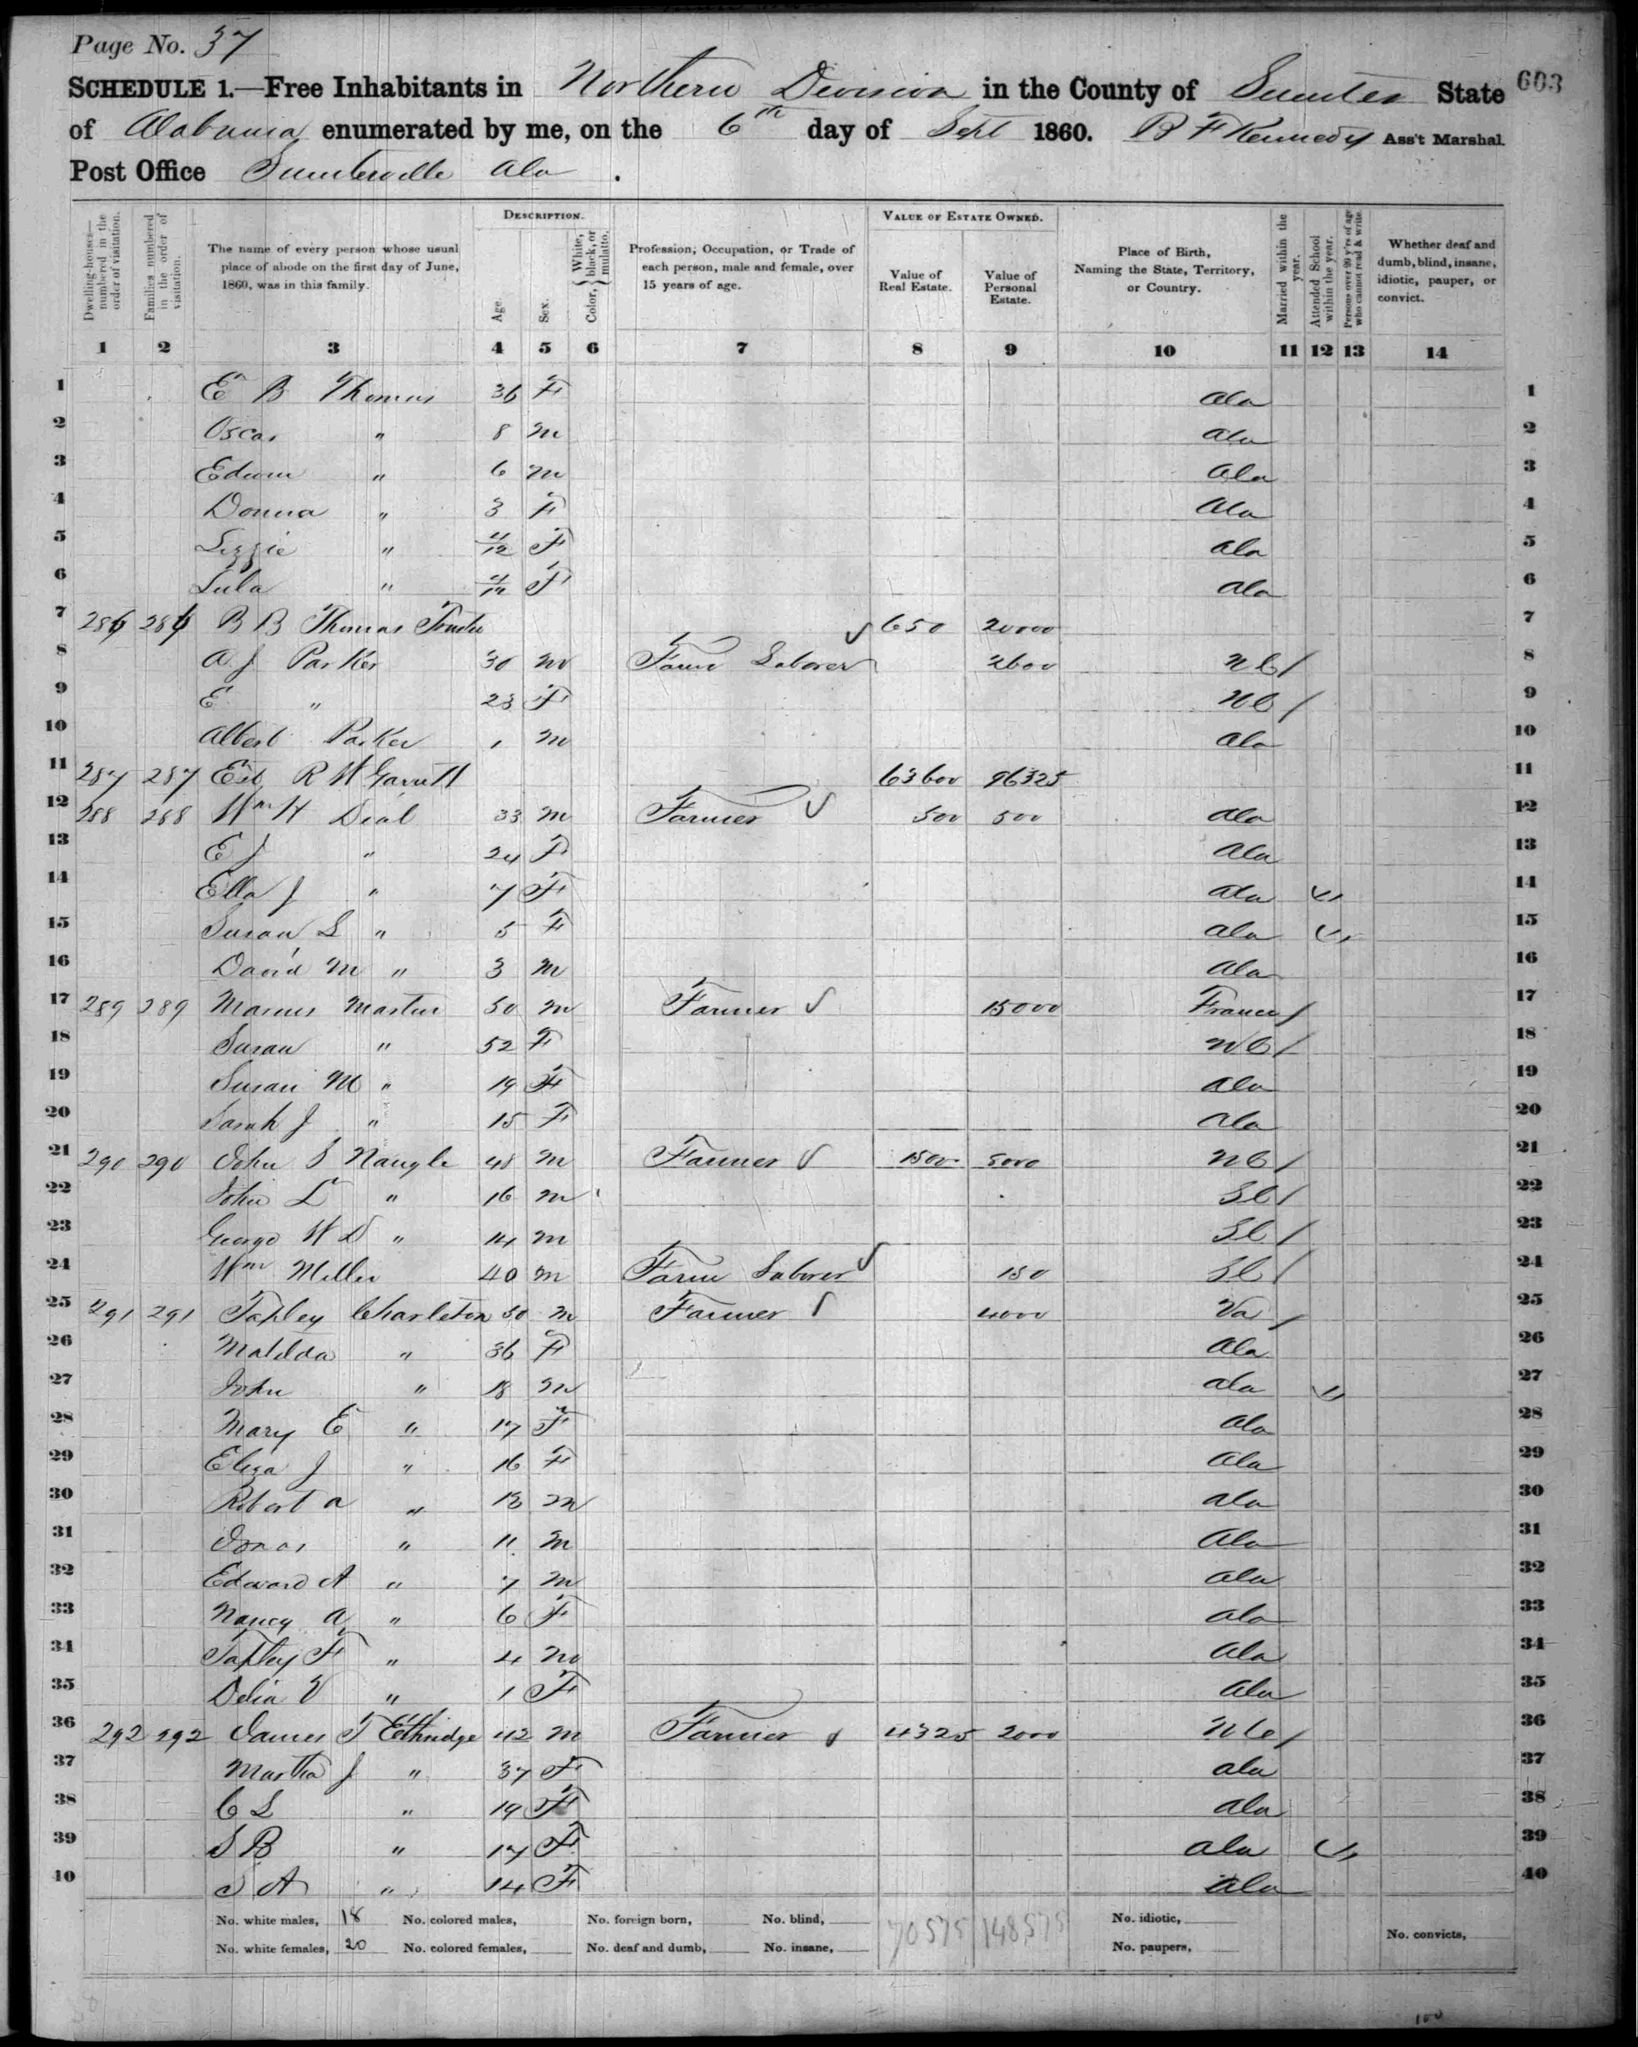 Page No. 37
SCHEDULE 1.—Free Inhabitants in Northern Division in the County of Sumter State 603
of Alabama enumerated by me, on the 6th day of Sept 1860. B F Kennedy Ass't Marshal.
Post Office Sumterville Ala .
Dwelling-houses—numbered in the order of visitation.
Families numbered in the order of visitation.
The name of every person whose usual place of abode on the first day of June, 1860, was in this family.
DESCRIPTION.
Age.
Sex.
Color, { White, black, or mulatto.
Profession, Occupation, or Trade of each person, male and female, over 15 years of age.
VALUE OF ESTATE OWNED.
Value of Real Estate.
Value of Personal Estate.
Place of Birth, Naming the State, Territory, or Country.
Married within the year.
Attended School within the year.
Persons over 20 y'rs of age who cannot read & write.
Whether deaf and dumb, blind, insane, idiotic, pauper, or convict.
1 2 3 4 5 6 7 8 9 10 11 12 13 14
1 E B Thomas 36 F Ala 1
2 Oscar " 8 m Ala 2
3 Edwin " 6 m Ala 3
4 Donna " 3 F Ala 4
5 Lizzie " 11/12 F Ala 5
6 Lula " F Ala 6
7 286 286 B B Thomas 650 20000 7
8 A J Parker 30 m Farm Laborer 2600 N C / 8
9 E " 23 F N C / 9
10 Albert Parker 1 m Ala 10
11 287 287 Est R W Garrett 63600 96325 11
12 288 288 Wm H Dial 33 m Farmer 500 500 Ala 12
13 E J " 24 F Ala 13
14 Ella J " 7 F Ala 14
15 Susan L " 5 F Ala 15
16 David M " 3 m Ala 16
17 289 289 Marcus Martin 50 m Farmer 15000 France / 17
18 Susan " 52 F N C / 18
19 Susan M " 19 F Ala 19
20 Sarah J " 15 F Ala 20
21 290 290 John S Naugle 48 m Farmer 1500 5000 N C / 21
22 John L " 16 m S C / 22
23 George W D " 14 m S C / 23
24 Wm Miller 40 m Farm Laborer 150 S C / 24
25 291 291 Tapley Charleton 50 m Farmer 4000 Va / 25
26 Matilda " 36 F Ala 26
27 John " 18 m Ala 27
28 Mary E " 17 F Ala 28
29 Eliza J " 16 F Ala 29
30 Robert A " 13 m Ala 30
31 Jonas " 11 m Ala 31
32 Edward A " 7 m Ala 32
33 Nancy A " 6 F Ala 33
34 Tapley F " 4 m Ala 34
35 Delia V " 1 F Ala 35
36 292 292 James T Ethridge 42 m Farmer 4325 2000 N C / 36
37 Martha J " 37 F Ala 37
38 C L " 19 F Ala 38
39 S B " 17 F Ala 39
40 S A " 14 F Ala 40
No. white males, 18 No. colored males, No. foreign born, No. blind, 70575 148,575 No. idiotic,
No. white females, 20 No. colored females, No. deaf and dumb, No. insane, No. paupers, No. convicts,
100